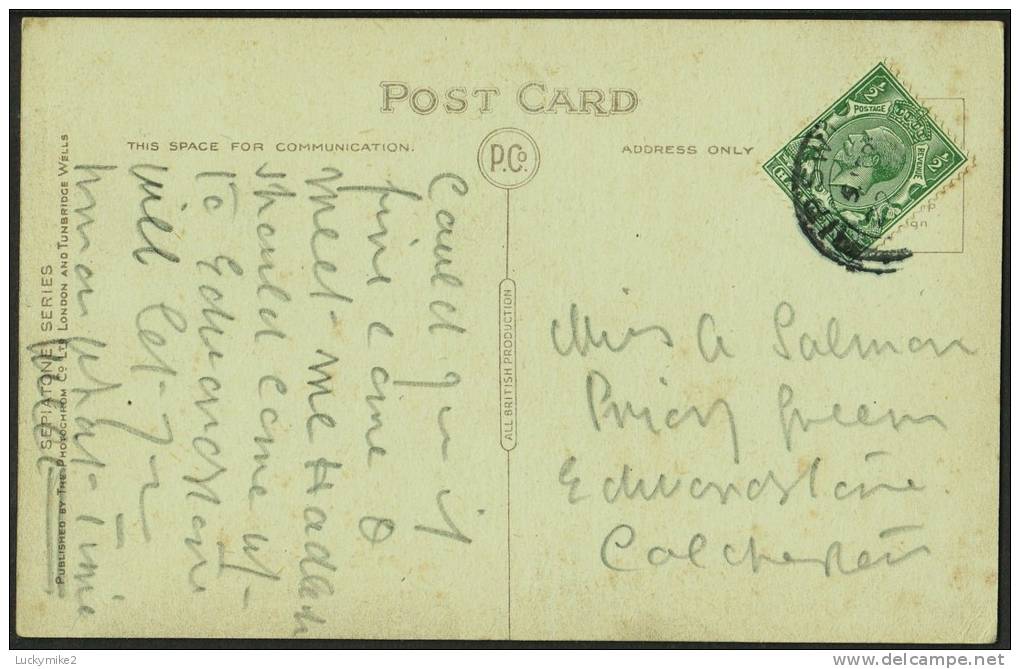 POST CARD
THIS SPACE FOR COMMUNICATION.
ADDRESS ONLY
P.Co.
½ POSTAGE
REVENUE ½
Could you if
fine come &
meet me Hadleigh
should come
To Edwardstone
will let you
know what Time
ALL BRITISH PRODUCTION
Miss A Salmon
Priory Green
Edwardstone
Colchester
SEPIATONE SERIES
PUBLISHED BY THE PHOTOCHROM CO LTD LONDON AND TUNBRIDGE WELLS
Luckymike2
delcampe.net